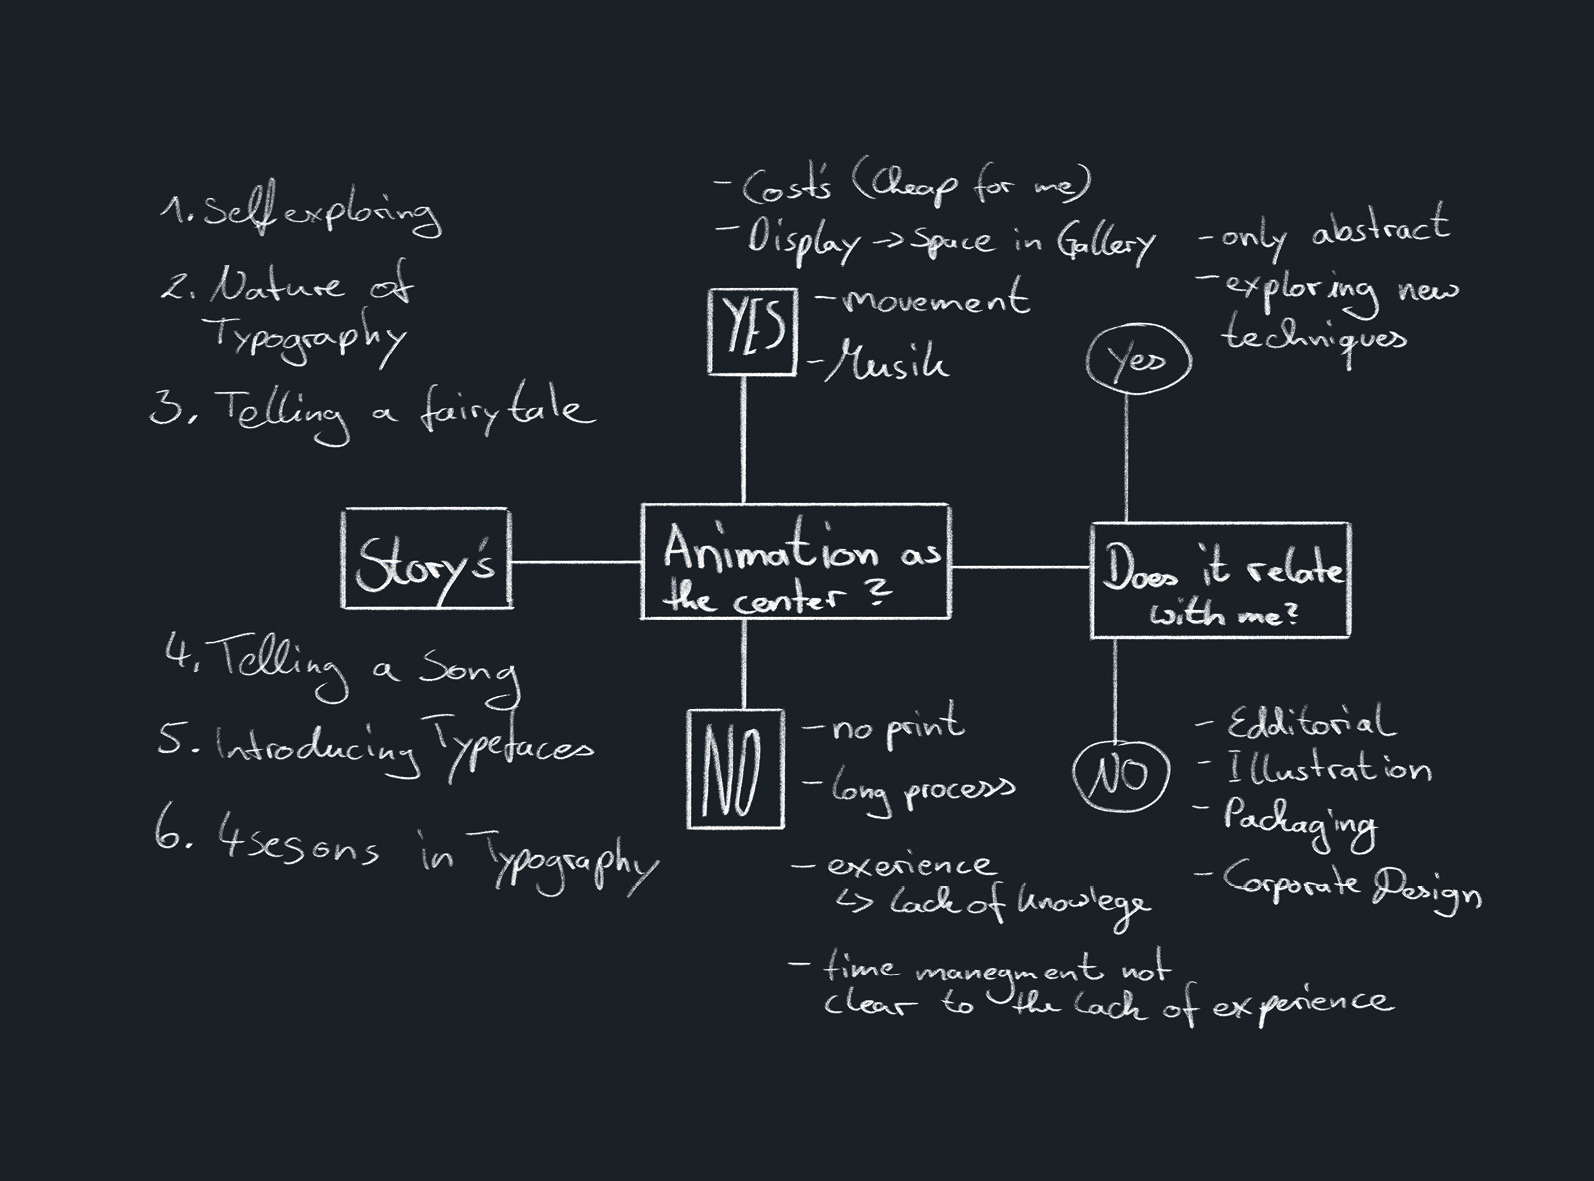 1. Selfexploring
2. Nature of
Typography
3. Telling a fairytale
Story's
4. Telling a Song
5. Introducing Typefaces
6. 4sesons in Typography
- Cost's (Cheap for me)
- Display -> Space in Gallery
YES
- movement
- Musik
Animation as
the center?
NO
- no print
- long process
- exerience
↳ Lack of knowlege
- time manegment not
clear to the lack of experience
- only abstract
- exploring new
techniques
Yes
Does it relate
with me?
NO
- Edditorial
- Illustration
- Packaging
- Corporate Design